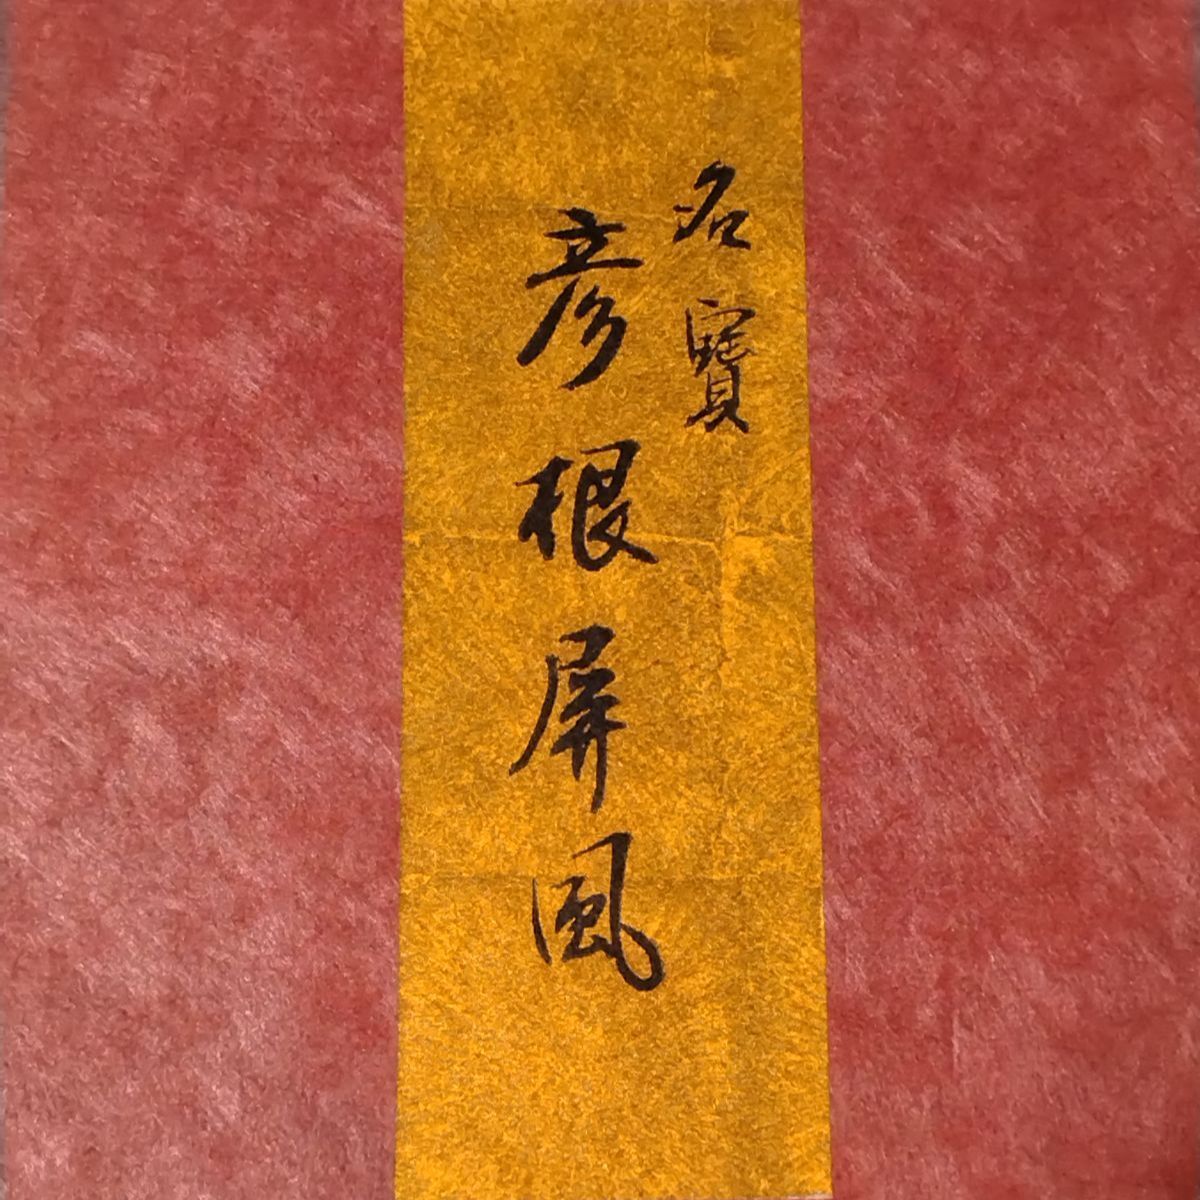 名寶
彦根屏風